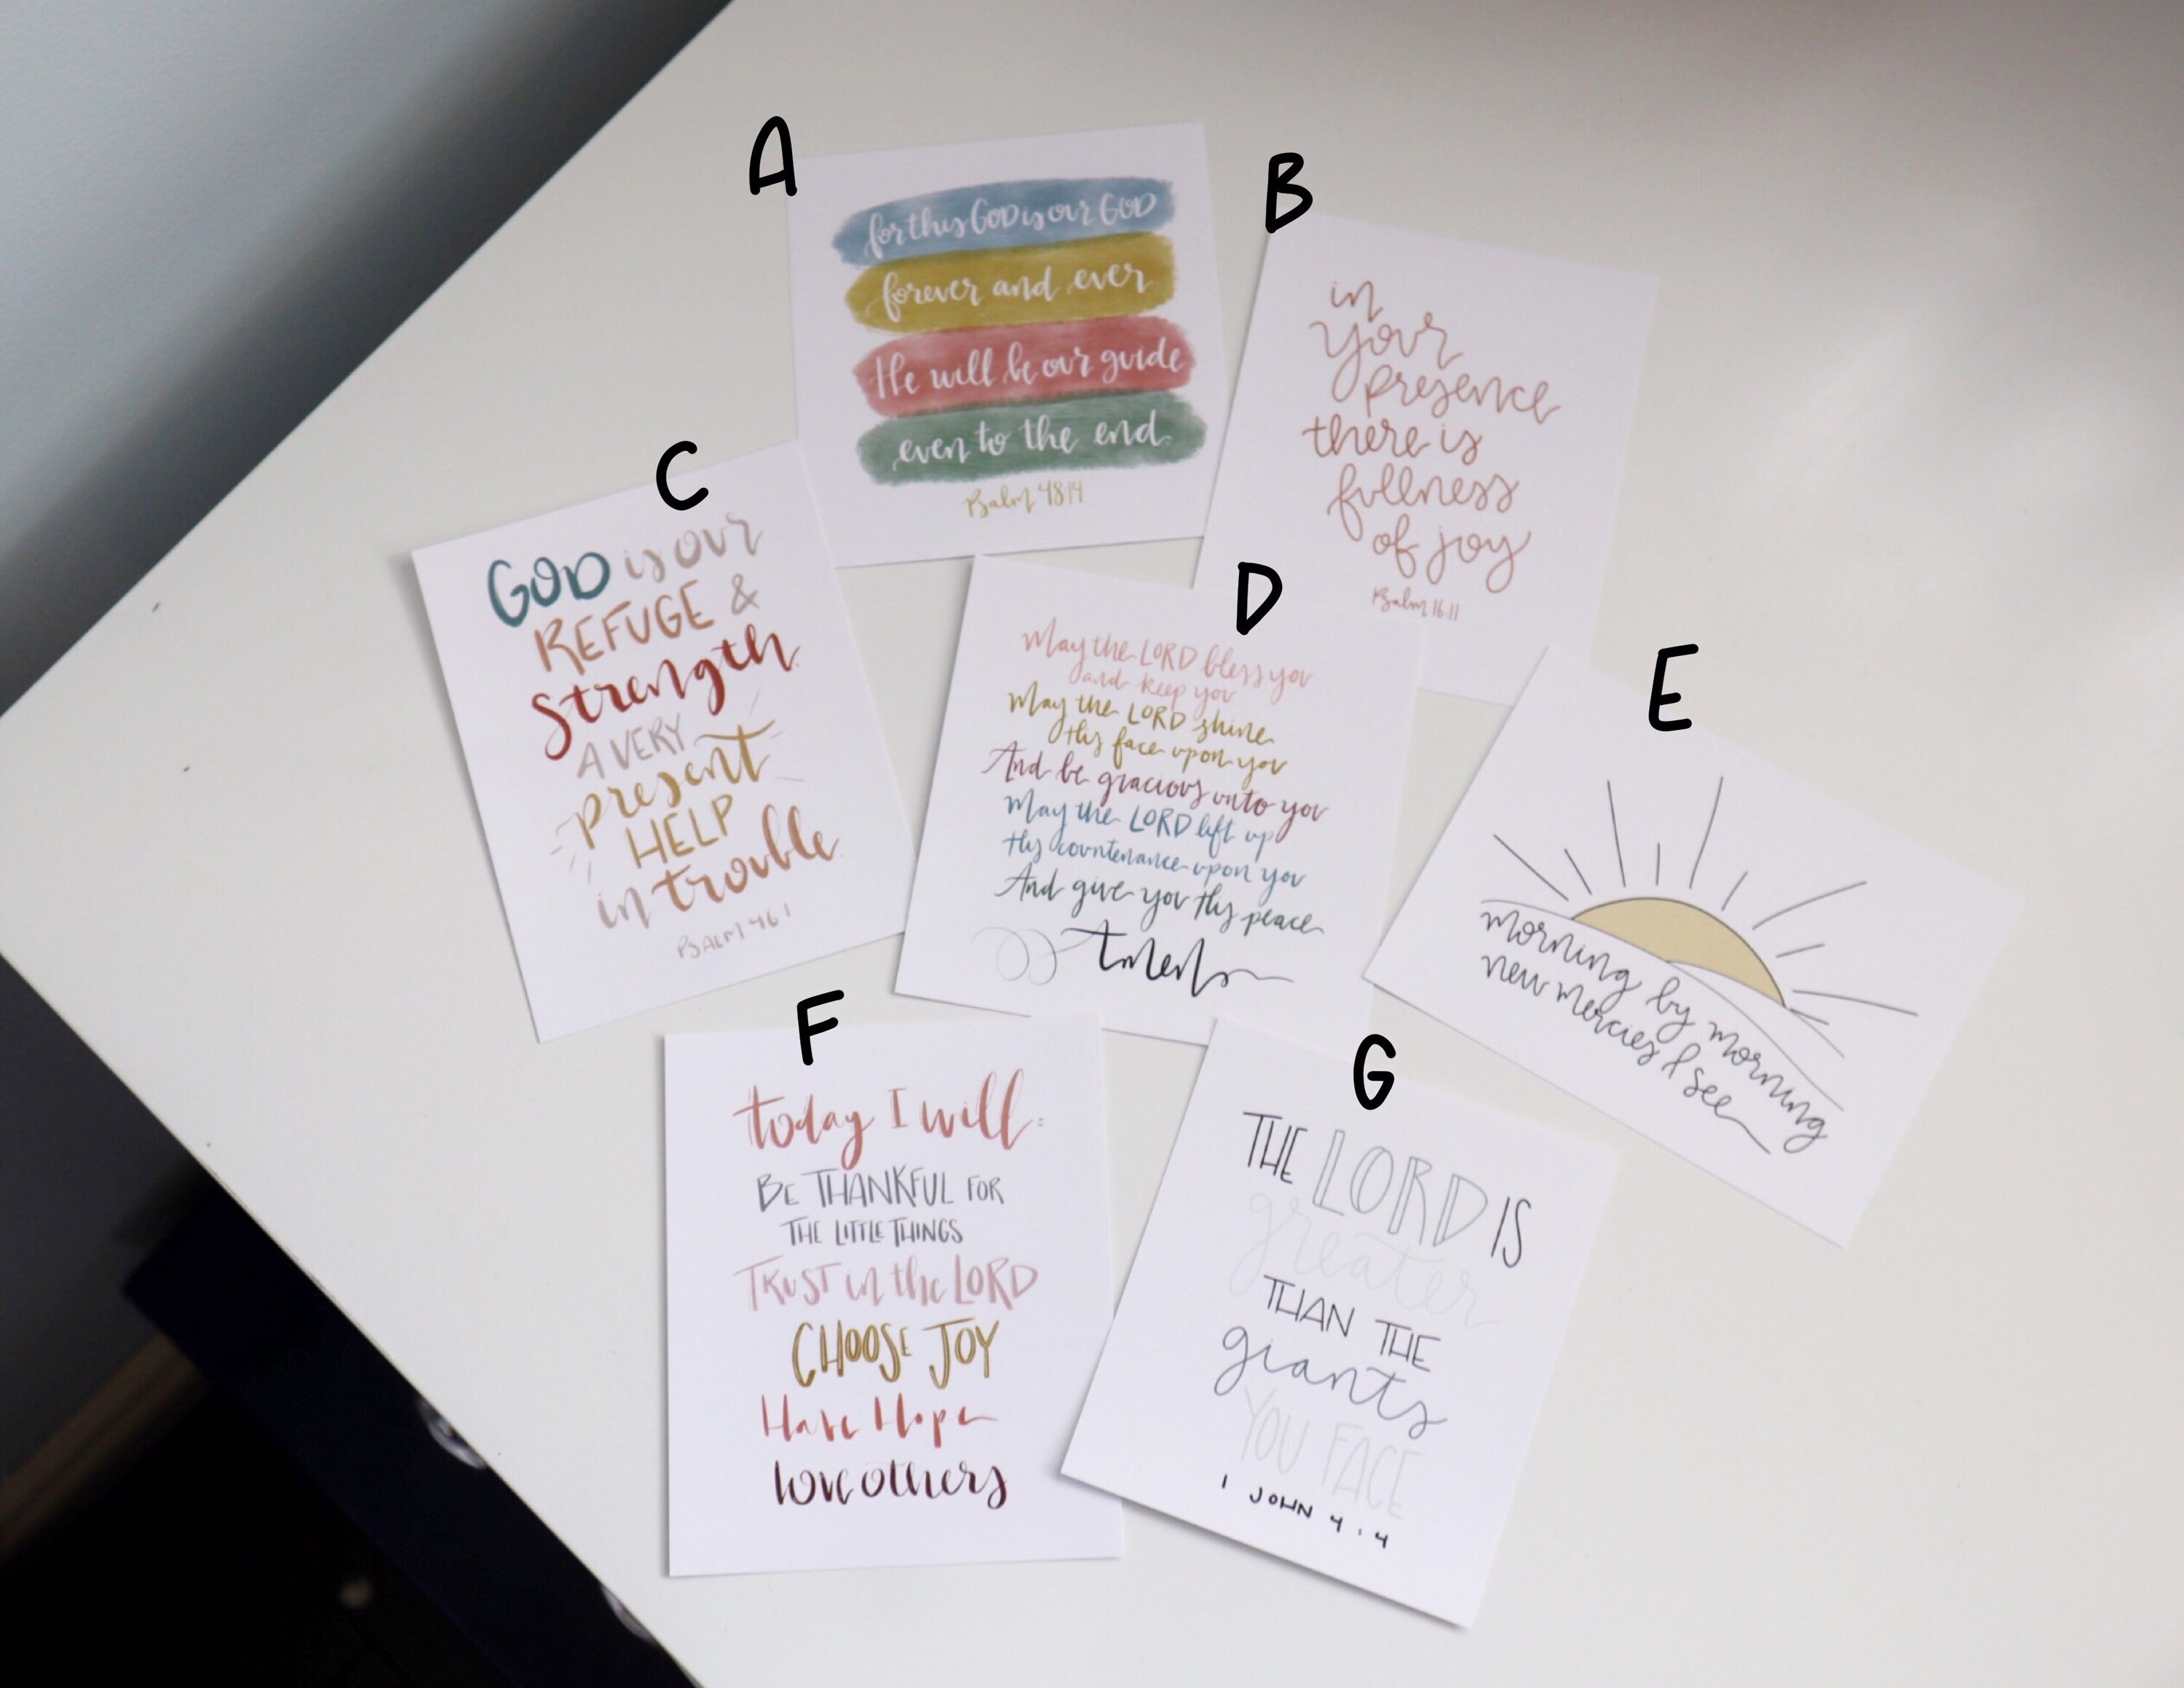 A
for this GOD is our GOD
forever and ever
He will be our guide
even to the end.
Psalm 48:14
B
in
your
presence
there is
fullness
of joy
Psalm 16:11
C
GOD is our
REFUGE &
Strength
A VERY
present
HELP
in trouble
PSALM 46:1
D
May the LORD bless you
and keep you
May the LORD shine
His face upon you
And be gracious unto you
May the LORD lift up
His countenance upon you
And give you His peace
Amen
E
morning by morning
new mercies I see
F
today I will:
BE THANKFUL FOR
THE LITTLE THINGS
TRUST in the LORD
CHOOSE JOY
Have Hope
love others
G
THE LORD IS
greater
THAN THE
giants
YOU FACE
1 JOHN 4:4